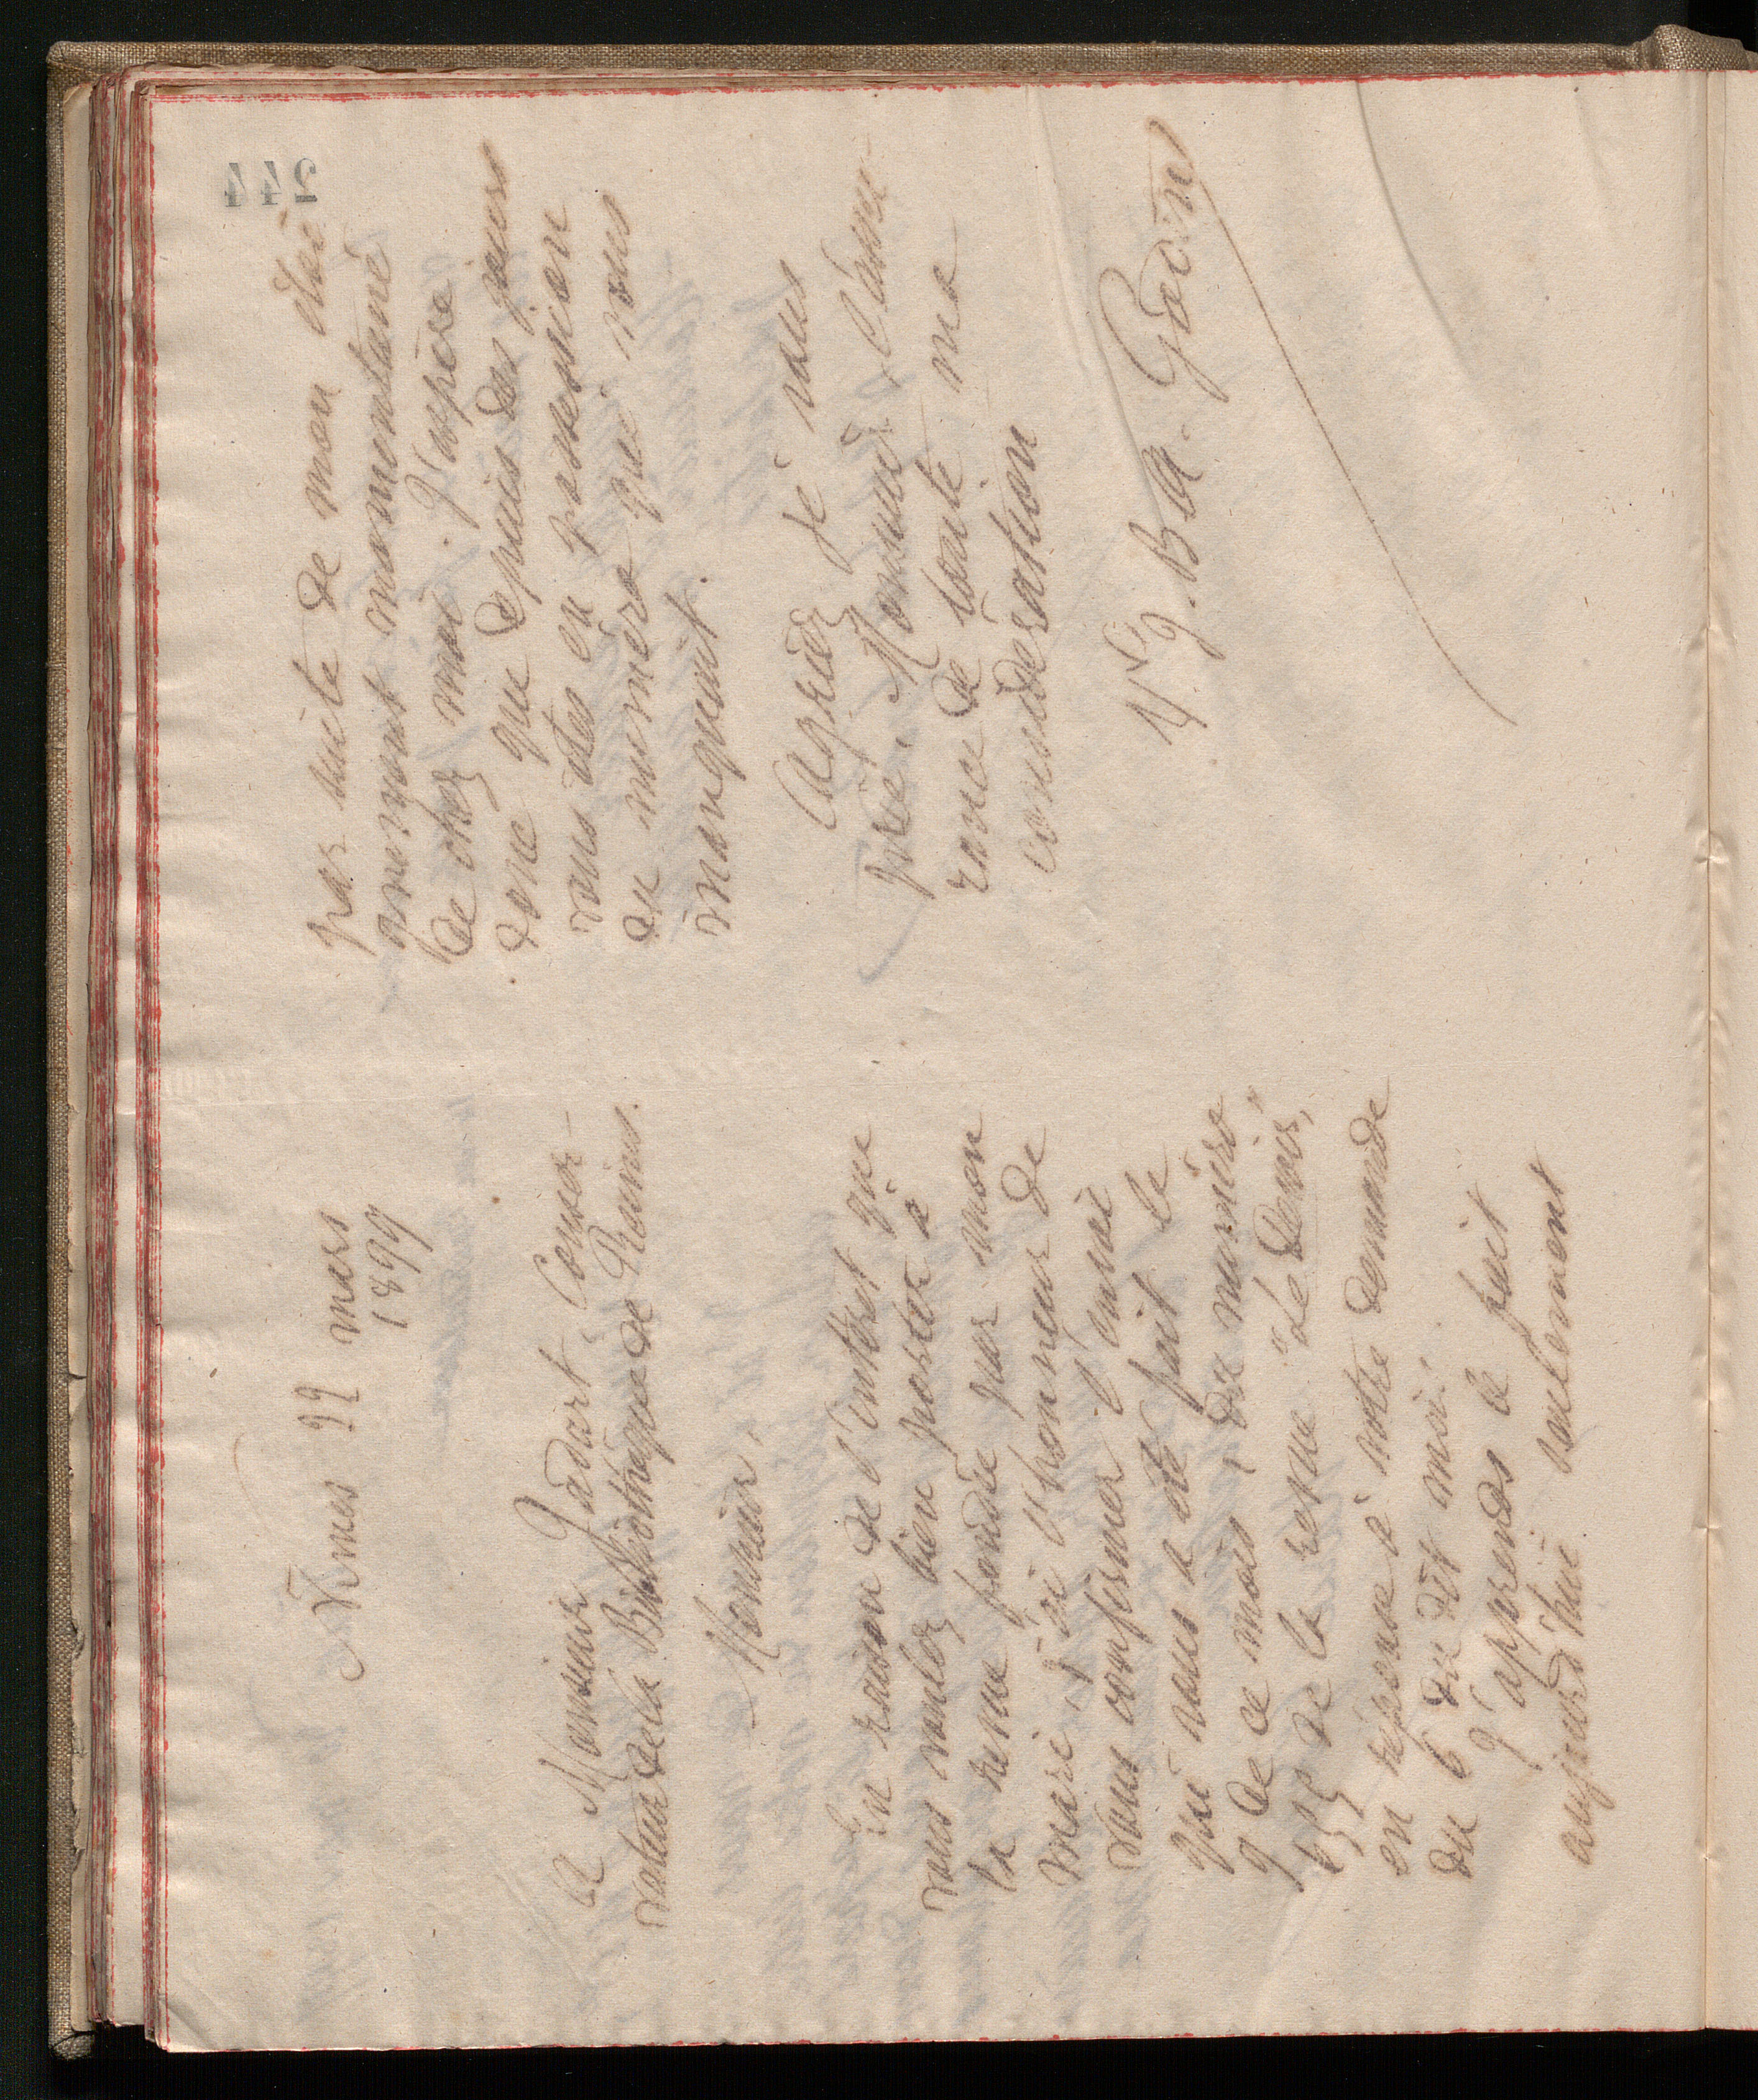 Nimes 22 mars
1897
A Monsieur Jadart, Conser-
vateur de la Bibliothèque de Reims.
Monsieur,
En raison de l'intérêt que
vous voulez bien porter à
la revue fondée par mon
mari, j'ai l'honneur de
vous confirmer l'envoi
qui vous a été fait le
9 de ce mois, du numéro
de la revue "Le Devoir",
en réponse à votre demande
du 6 du dit mois.
J'apprends le fait
aujourd'hui seulement
par suite de mon éloi-
gnement momentané
de chez moi. J'espère
donc que depuis des jours
vous êtes en possession
du numéro qui vous
manquait.
Agréez je vous
prie, Monsieur, l'assu-
rance de toute ma
considération
Vve J. Bte. Godin
344